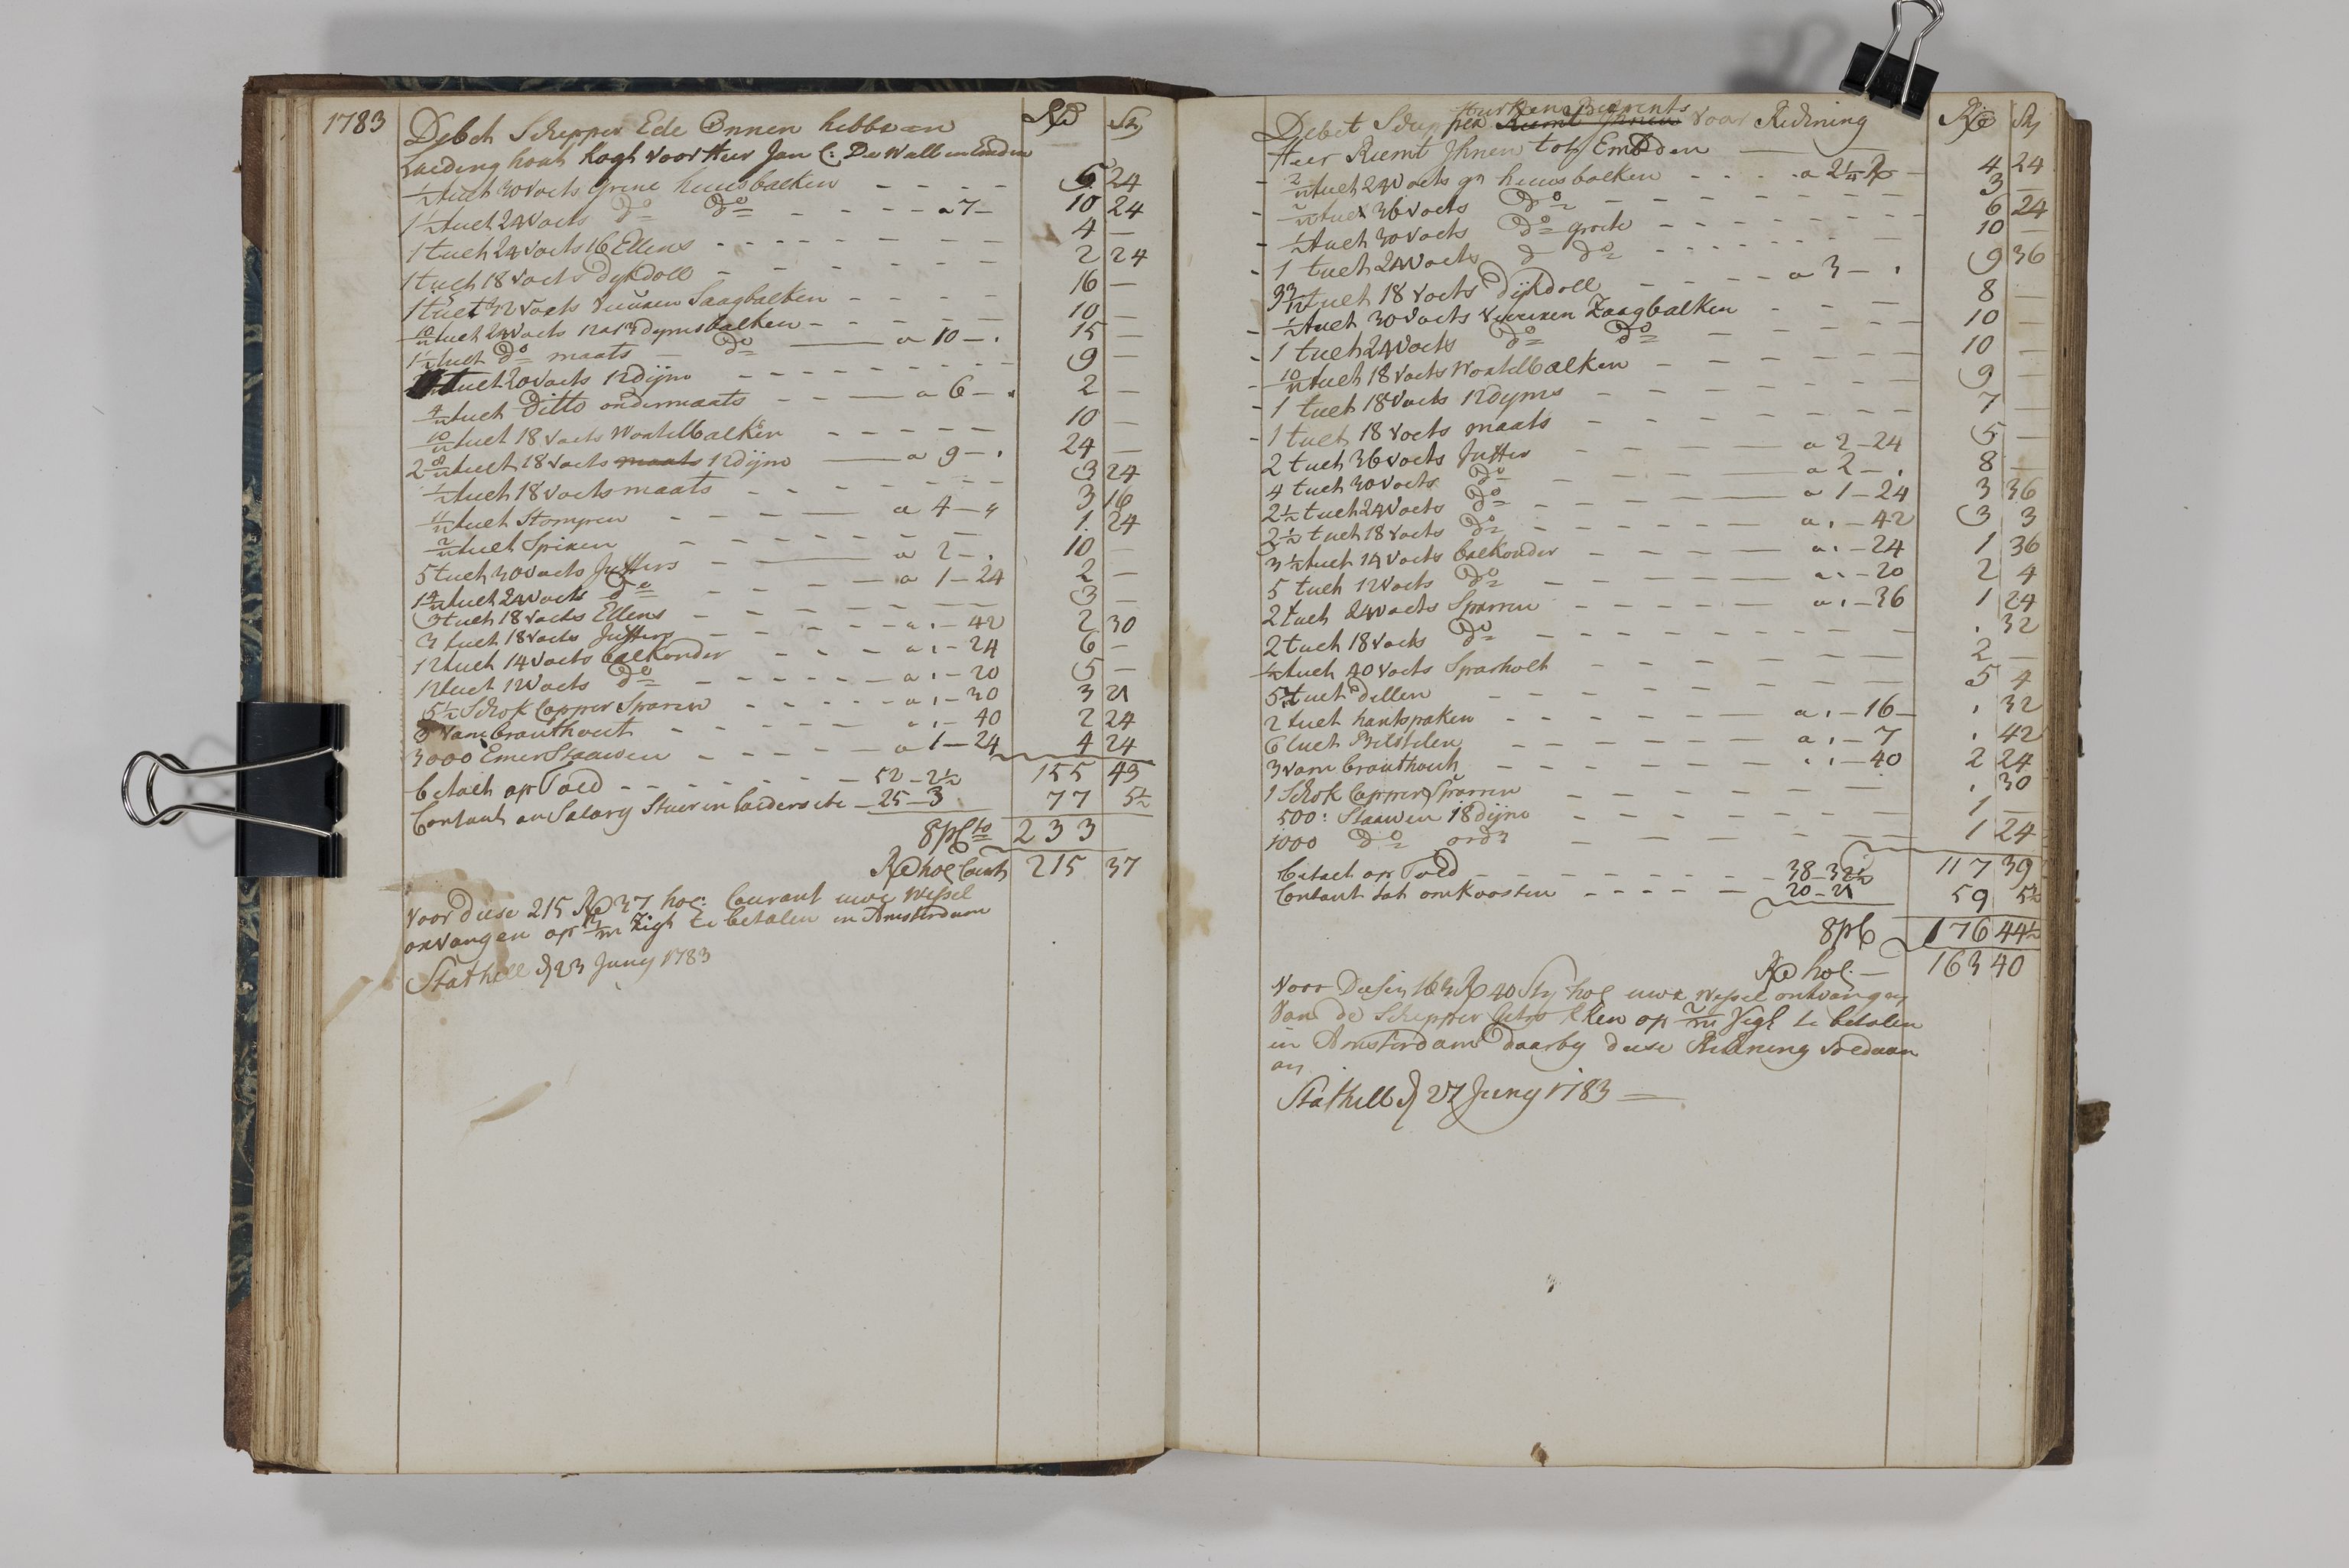 1783 Debet Schipper Ede Onnen hebbe an Rd St
Laeding hout kogt voor Heer Jan C: De Wall in Emden
1/2 tuelt 30 voets grene huusbalken - - - - 6 24
1 1/2 tuelt 24 voets do do - - - - a 7 - 10 24
1 tuelt 24 voets 16 Ellens - - - - 4 —
1 tuelt 18 voets Dykdoll - - - - 2 24
1 tuelt 32 voets vuuren Saagbalken - - - - 16 —
10/12 tuelt 24 voets 12 a 13 dyms balken - - - - 10 —
1 1/2 tuelt do maats — do — a 10 - . 15 —
tuelt 20 voets 12 dijms - - - - 9 —
4/12 tuelt Ditto ondermaats - - — a 6 - . 2 —
10/12 tuelt 18 voets Wontelbalken - - - - 10 —
2 8/12 tuelt 18 voets maats 12 dijms — a 9 - . 24 —
1/2 tuelt 18 voets maats - - - - 3 24
tuelt Stompen - - - — a 4 - " 3 16
2/12 tuelt Spiren - - - - 1. 24
5 tuelt 30 voets Juffers - — a 2 - . 10 —
1 4/12 tuelt 24 voets do - - - a 1 - 24 2 —
3 tuelt 18 voets Ellens - - - - 3 —
3 tuelt 18 voets Juffers - - - a . - 42 2 30
12 tuelt 14 voets balkonder - - - a . - 24 6 —
12 tuelt 12 voets do - - - a . - 20 5 —
5 1/2 Schok Copper Sparren - - - a . - 30 3 21
3 vam branthout - - - a . - 40 2 24
3000 Emer Staawen - - - a 1 - 24 4 24
betalt op Told - - - - 52 - 2 1/2 155 43
Contant an Salary Stuer in Laiders etc - 25 - 3 77 5 1/2
8 pCto 233
Rd hol Cour 215 37
voor diese 215 Rd 37 hol: Courant uwe Wissel
onvangen op Zigt te betalen in Amsterdam
Stathell d 23 Juny 1783
Hurken Berents
Debet Schipper Riemt Ihnen voor Rekning Rd St
Heer Riemt Ihnen tot Emden
2/12 tuelt 24 voets gr huusbalken - - - . a 2 1/4 R - 4 24
tuelt 36 voets do - - - - 3 —
1/2 tuelt 30 voets do grote - - - - 6 24
1 tuelt 24 voets d do - - - - 10 —
3 3/12 tuelt 18 voets Dijkdoll - - - a 3 - . 9 36
1/2 tuelt 30 voets vuuren Zaagbalken - - - 8 —
1 tuelt 24 voets do do - - - - 10 —
10/12 tuelt 18 voets Wontelbalken - - - - 10 —
1 tuelt 18 voets 12 dyms - - - - 9 —
1 tuelt 18 voets maats - - - - 7 —
2 tuelt 36 voets Juffer - - - a 2 - 24 5 —
4 tuelt 30 voets do - - - a 2 - . 8 —
2 1/2 tuelt 24 voets do - - - a 1 - 24 3 36
3 1/2 tuelt 18 voets do - - - a . - 42 3 3
3 1/2 tuelt 14 voets balkonder - - - a . - 24 1 36
5 tuelt 12 voets do - - - a . - 20 2 4
2 tuelt 24 voets Sparren - - - a . - 36 1 24
2 tuelt 18 voets do - - - - . 32
1/2 tuelt 40 voets Sparholt - - - - 2 —
5 tuelt Dellen - - - - 5 4
2 tuelt hantspaken - - - a . - 16 - . 32
6 tuelt - - - a . - 7 . 42
3 vam branthout - - - . . - 40 2 24
1 Schok Copper Sparren - - - - . 30
500: Staawen 18 dijms - - - - 1 —
1000 do ord - - - - 1 24
betalt op Told - - - - 38 - 32 1/2 117 39
Contant tot onkoosten - - - - 20 - 21 59 5 1/2
8 pC 176 44 1/2
Rd hol. — 163 40
Voor Diesen 163 Rd 40 St hol uwe Wissel ontvangen
Van de Schipper op Zigt te betalen
in Amsterdam Daarby diese Rekning voldaan
an
Stathell d 27 Juny 1783 —